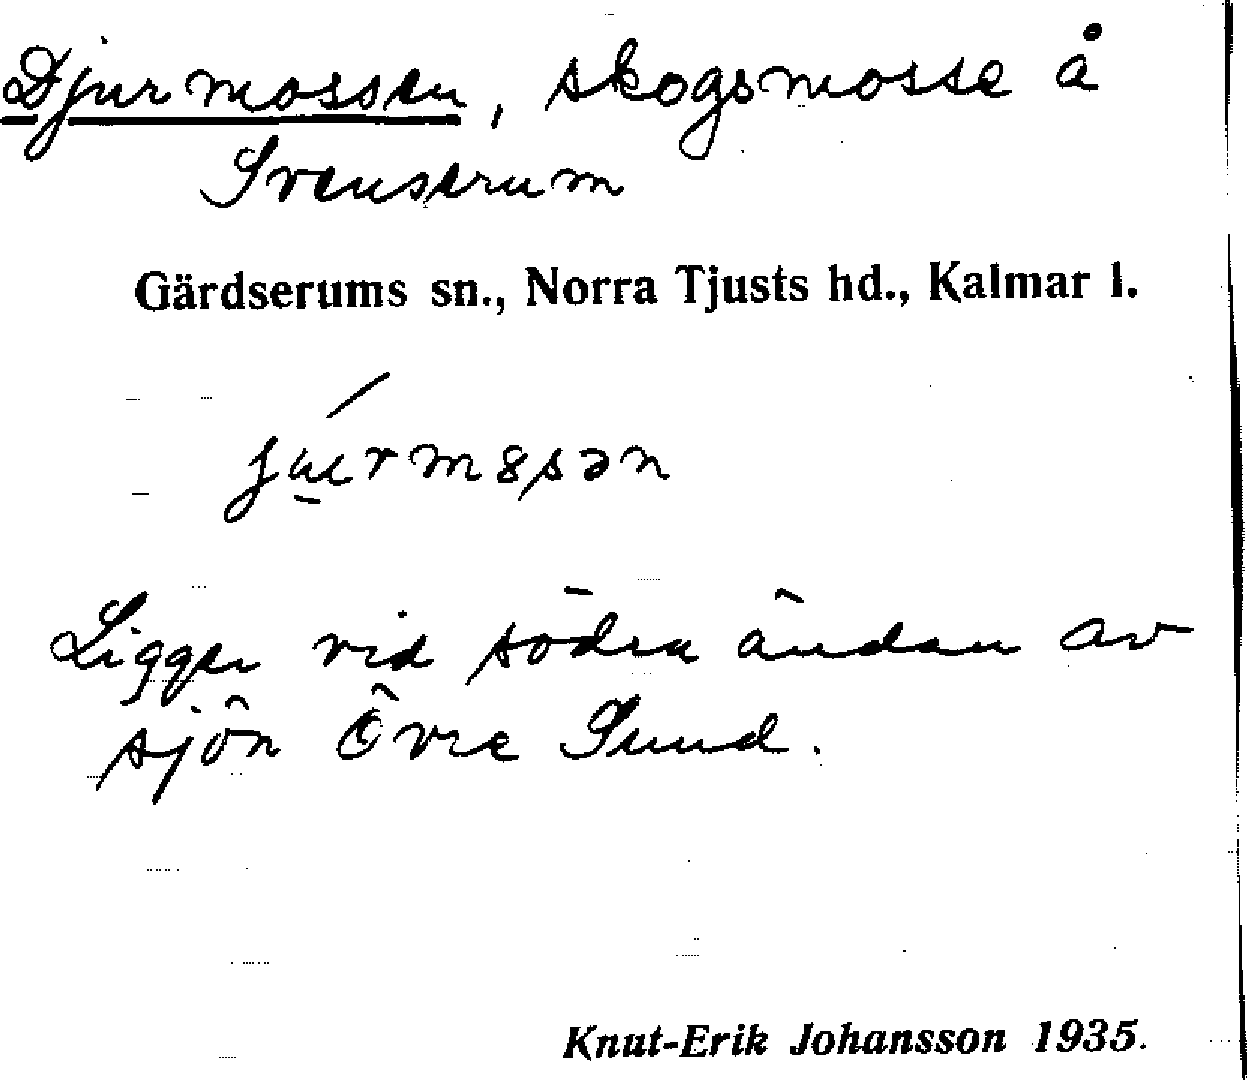 Djurmossen, skogsmosse å
Svenserum
Gärdserums sn., Norra Tjusts hd., Kalmar l.
Ligger vid södra ändan av
sjön Övre Sund.
Knut-Erik Johansson 1935.